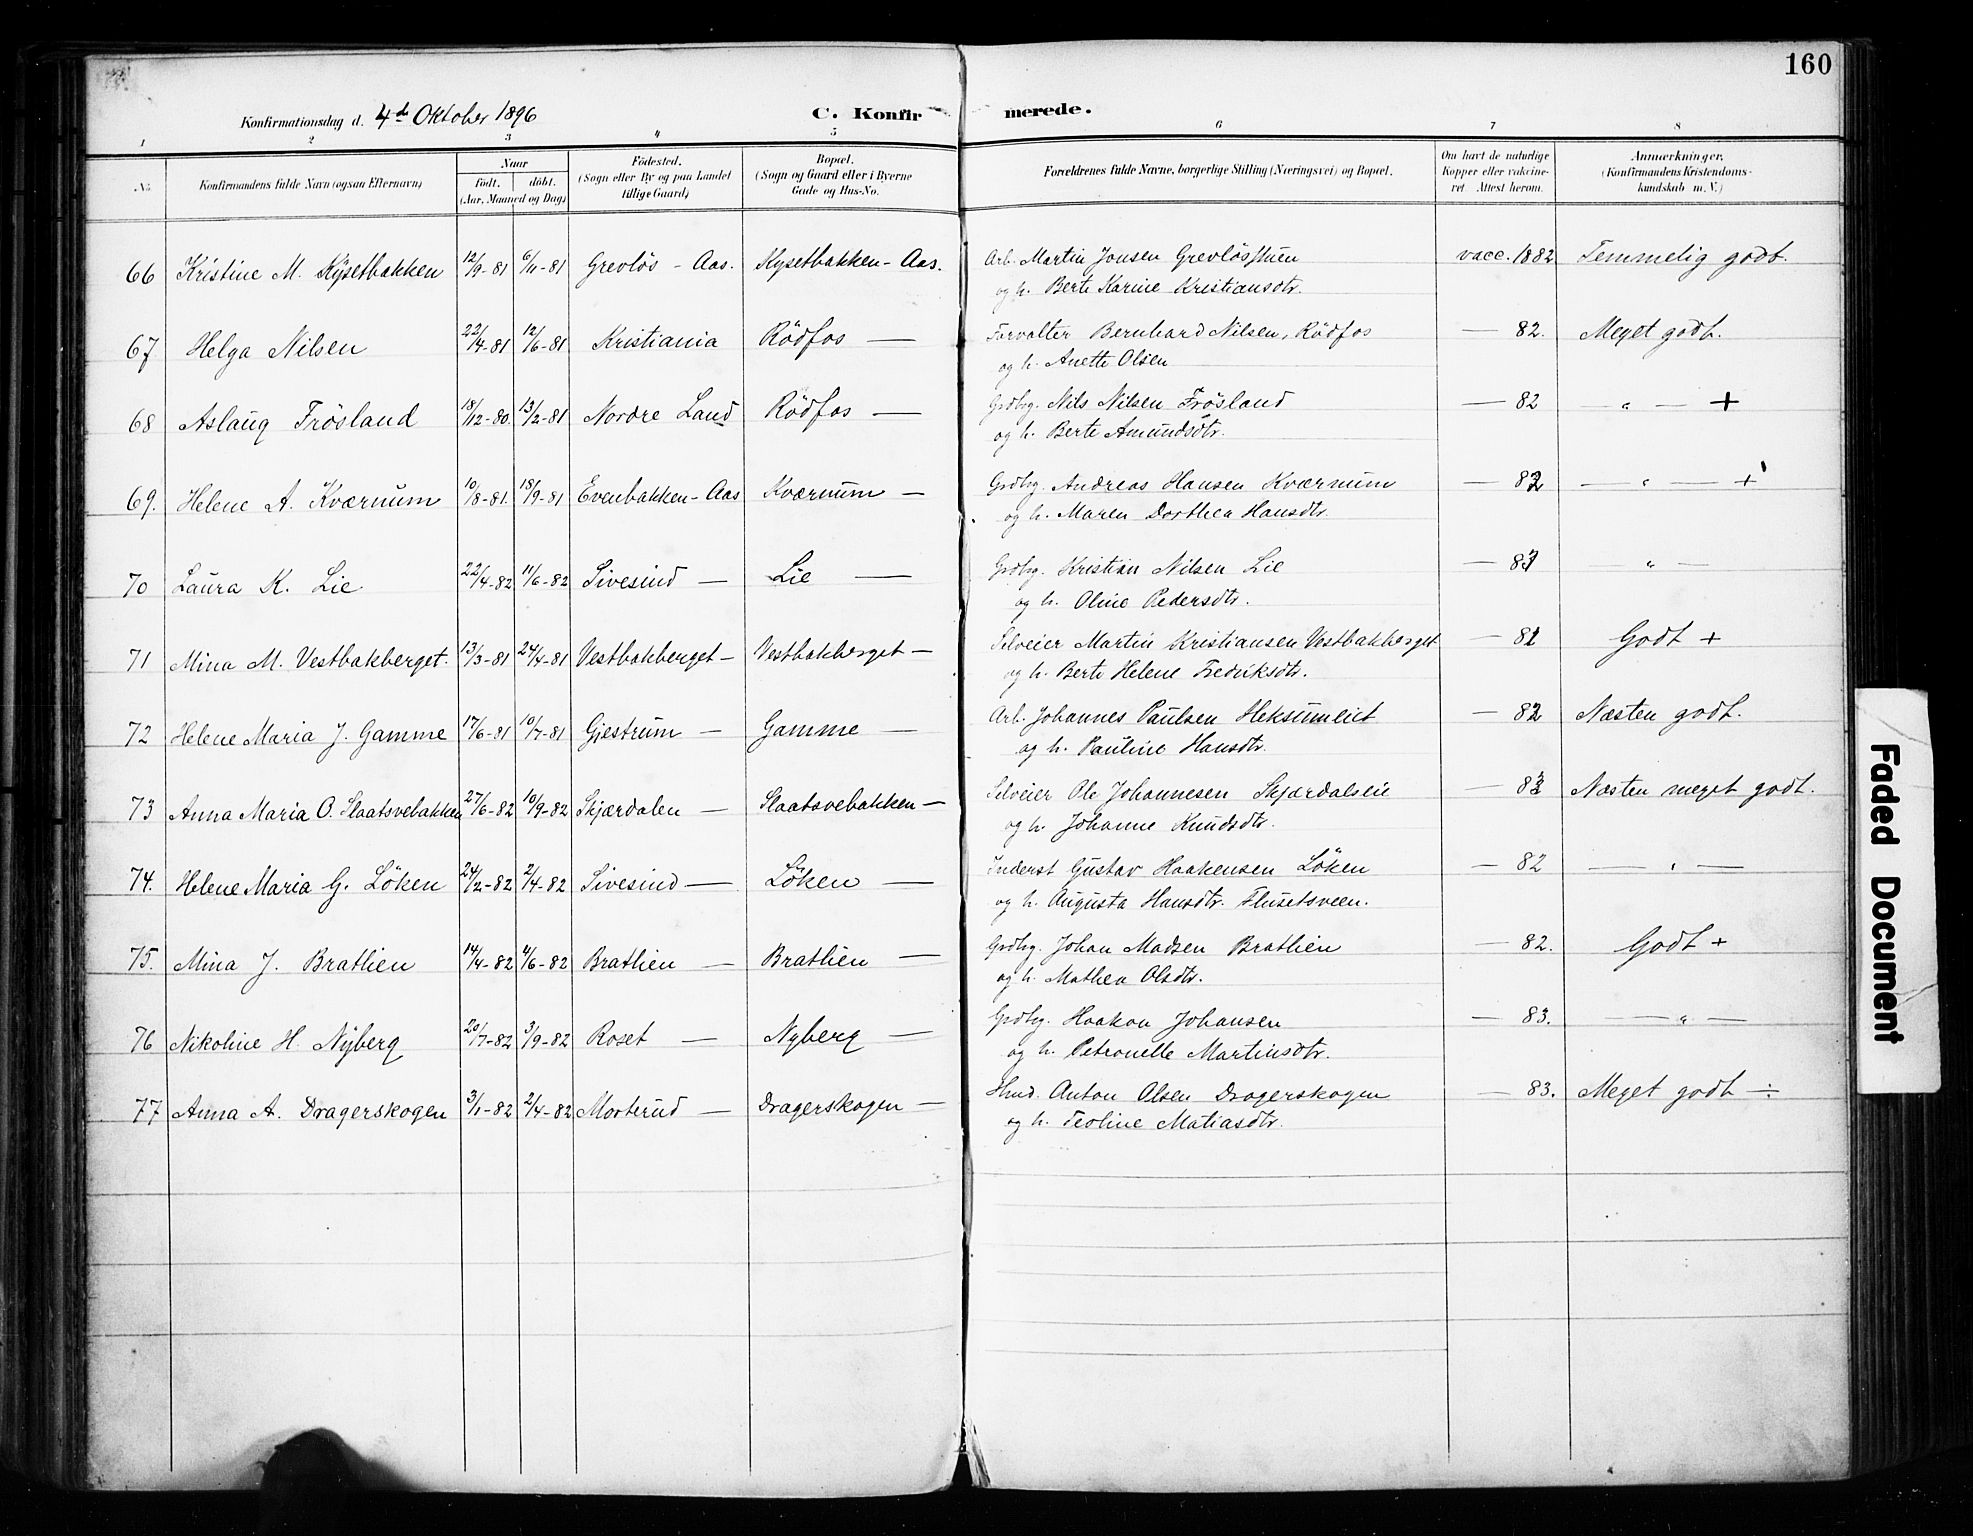 160
Konfirmationsdag d. 4de Oktober 1896 C. Konfirmerede.
1 2 3 4 5 6 7 8
No. Konfirmandens fulde Navn (ogsaa Efternavn) Naar født. døbt. (Aar, Maaned og Dag) Fødested. (Sogn eller By og paa Landet tillige Gaard) Bopæl. (Sogn og Gaard eller i Byerne Gade og Hus-No. Forældrenes fulde Navne, borgerlige Stilling (Næringsvei) og Bopæl. Om havt de naturlige Kopper eller vaccineret. Attest herom. Anmærkninger. (Konfirmandens Kristendomskundskab m. V.)
66 Kristine M. Kysetbakken 12/9-81 6/11-81 Grevlös - Aas. Kysetbakken - Aas. Arb. Martin Jonsen Grevlösstuen vacc. 1882 Temmelig godt.
og h. Berte Karine Kristiansdtr.
67 Helga Nilsen 22/4-81 12/6-81 Kristiania Rödfos — Forvalter Bernhard Nilsen, Rödfos — 82. Meget godt.
og h. Anette Olsen
68 Aslaug Frösland 18/12-80. 13/2-81 Nordre Land Rödfos — Grdbr. Nils Nilsen Frösland — 82 " — +
og h. Berte Amundsdtr.
69. Helene A. Kværnum 10/8-81. 18/9-81 Evenbakken - Aas Kværnum — Grdbr. Andreas Hansen Kværnum — 82 — " — +
og h. Maren Dorthea Hansdtr.
70 Laura K. Lie 22/4-82 11/6-82 Sivesind — Lie — Grdbr. Kristian Nilsen Lie — 83 " —
og h. Oline Pedersdtr.
71 Mina M. Vestbakberget. 13/3-81 24/4-81 Vestbakberget — Vestbakberget — Selveier Martin Kristiansen Vestbakberget — 82 Godt +
og h. Berte Helene Fredriksdtr.
72 Helene Maria J. Gamme 17/6-81 10/7-81 Gjestrum — Gamme — Arb. Johannes Paulsen Heksumeiet — 82 Næsten godt.
og h. Pauline Hansdtr.
73 Anna Maria O. Slaatsvebakken 27/6-82 10/9-82 Skjærdalen — Slaatsvebakken — Selveier Ole Johannesen Skjærdalseie — 83 Næsten meget godt.
og h. Johanne Knudsdtr.
74. Helene Maria G. Löken 24/2-82 2/4-82 Sivesind — Löken — Inderst Gustav Haakensen Löken — 82 — " —
og h. Augusta Hansdtr. Flusetsveen.
75. Mina J. Bratlien 14/4-82 4/6-82 Bratlien — Bratlien — Grdbr. Johan Madsen Bratlien — 82. Godt +
og h. Mathea Olsdtr.
76 Nikoline H. Nyberg 20/7-82 3/9-82 Roset — Nyberg — Grdbr. Haakon Johansen — 83. — " —
og h. Petronelle Martinsdtr.
77 Anna A. Dragerskogen 3/1-82 2/4-82 Morterud — Dragerskogen — Hmd. Anton Olsen Dragerskogen — 83. Meget godt ÷
og h. Teoline Matiasdtr.
Faded Document